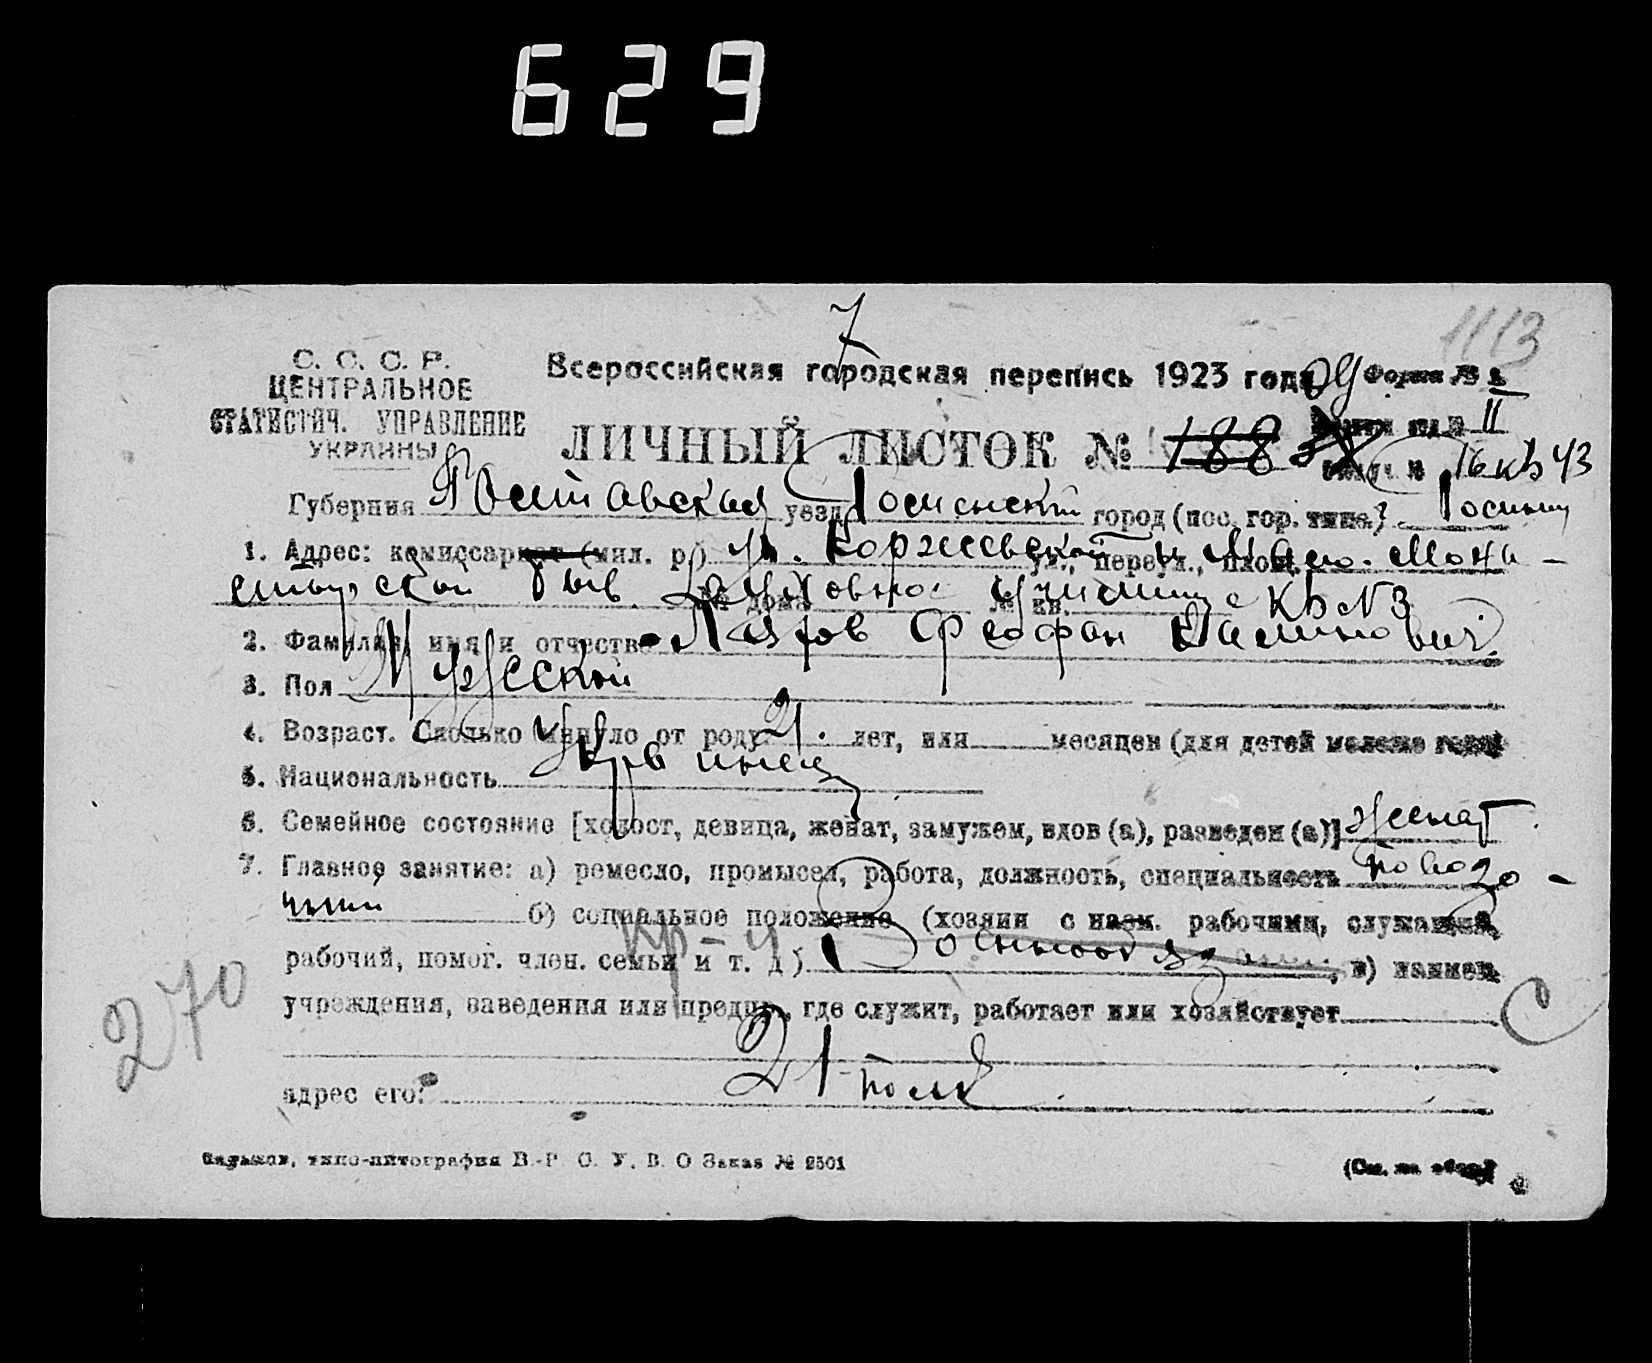 629
7
1113
С. С. С. Р.
ЦЕНТРАЛЬНОЕ
СТАТИСТИЧ. УПРАВЛЕНИЕ
УКРАИНЫ
Всероссийская городская перепись 1923 года
Форма №
ЛИЧНЫЙ ЛИСТОК № 188
II
16 кв 43
Губерния Полтавская уезд город (пос. гор. типа)
1. Адрес: комиссариат (мил. р.) ул. ул., переул., площ. Мало. Мона-
стырской быв. Духовное № дома училище № кв. кв № 3
2. Фамилия, имя и отчество Феофан
3. Пол Мужеской
4. Возраст. Сколько минуло от роду 21. лет, или месяцев (для детей моложе года)
5. Национальность Украинец
6. Семейное состояние [холост, девица, женат, замужем, вдов (а), разведен (а)] женат.
7. Главное занятие: а) ремесло, промысел, работа, должность, специальность повозо-
чный б) социальное положение (хозяин с наем. рабочими, служащий,
рабочий, помог. член. семьи и т. д.) в) наимен.
учреждения, заведения или предпр., где служит, работает или хозяйствует
270
С
21 полк
адрес его:
типо-литография В.-Р. С. У. В. О Заказ № 2501
(См. на обор.)